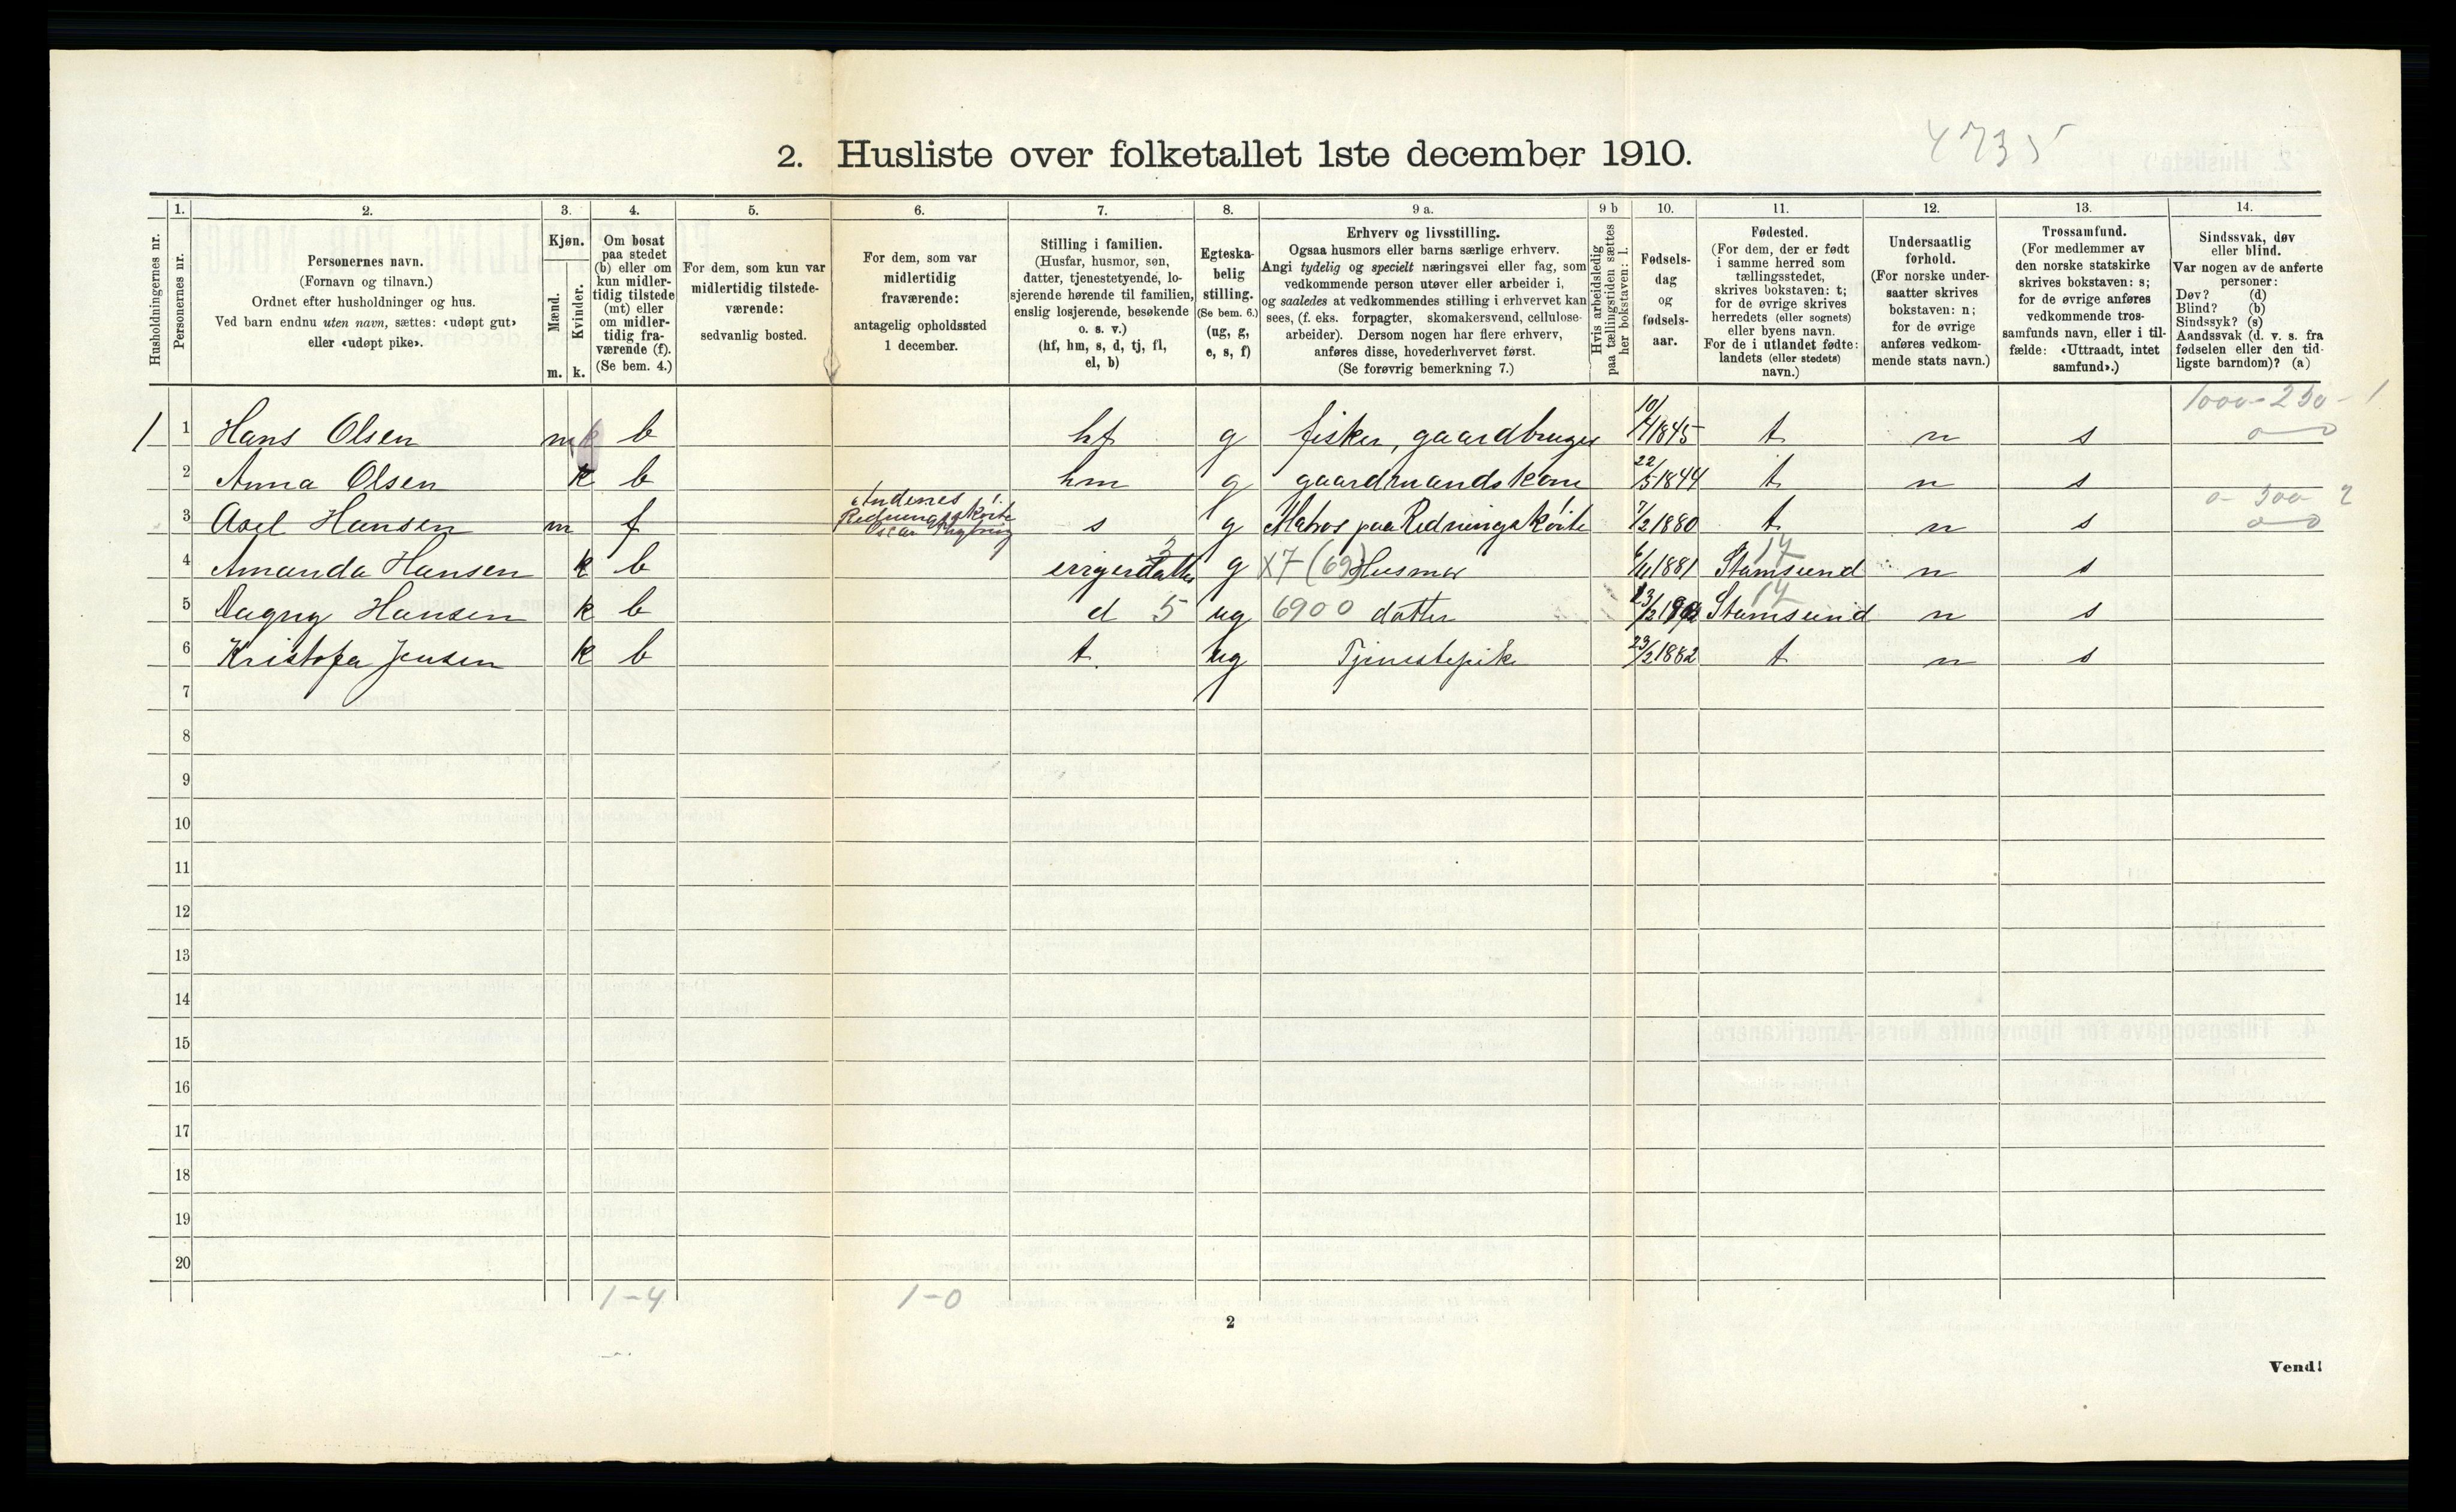 4735
2. Husliste over folketallet 1ste december 1910.
Husholdningernes nr.
1.
Personernes nr.
2.
Personernes navn.
(Fornavn og tilnavn.)
Ordnet efter husholdninger og hus.
Ved barn endnu uten navn, sættes: «udøpt gut»
eller «udøpt pike».
3.
Kjøn.
Mænd.
Kvinder.
m. k.
4.
Om bosat
paa stedet
(b) eller om
kun midler-
tidig tilstede
(mt) eller
om midler-
tidig fra-
værende (f).
(Se bem. 4.)
5.
For dem, som kun var
midlertidig tilstede-
værende:
sedvanlig bosted.
6.
For dem, som var
midlertidig
fraværende:
antagelig opholdssted
1 december.
7.
Stilling i familien.
(Husfar, husmor, søn,
datter, tjenestetyende, lo-
sjerende hørende til familien,
enslig losjerende, besøkende
o. s. v.)
(hf, hm, s, d, tj, fl,
el, b)
8.
Egteska-
belig
stilling.
(Se bem. 6.)
(ug, g,
e, s, f)
9 a.
Erhverv og livsstilling.
Ogsaa husmors eller barns særlige erhverv.
Angi tydelig og specielt næringsvei eller fag, som
vedkommende person utøver eller arbeider i,
og saaledes at vedkommendes stilling i erhvervet kan
sees, (f. eks. forpagter, skomakersvend, cellulose-
arbeider). Dersom nogen har flere erhverv,
anføres disse, hovederhvervet først.
(Se forøvrig bemerkning 7.)
9 b
Hvis arbeidsledig
paa tællingstiden sættes
her bokstaven: l.
10.
Fødsels-
dag
og
fødsels-
aar.
11.
Fødested.
(For dem, der er født
i samme herred som
tællingsstedet,
skrives bokstaven: t;
for de øvrige skrives
herredets (eller sognets)
eller byens navn.
For de i utlandet fødte:
landets (eller stedets)
navn.)
12.
Undersaatlig
forhold.
(For norske under-
saatter skrives
bokstaven: n;
for de øvrige
anføres vedkom-
mende stats navn.)
13.
Trossamfund.
(For medlemmer av
den norske statskirke
skrives bokstaven: s;
for de øvrige anføres
vedkommende tros-
samfunds navn, eller i til-
fælde: «Uttraadt, intet
samfund».)
14.
Sindssvak, døv
eller blind.
Var nogen av de anførte
personer:
Døv? (d)
Blind? (b)
Sindssyk? (s)
Aandssvak (d. v. s. fra
fødselen eller den tid-
ligste barndom)? (a)
1000-250-1
1 1 Hans Olsen m b hf g fisker, gaardbruger 10/4 1845 t n s 0-0
2 Anna Olsen k b hm g gaardmandskone 22/5 1844 t n s
0-300 2
3 Axel Hansen m f Andenes Redningsskøite Oscar s g Matros paa Redningskøite 7/2 1880 t n s 0-0
4 Amanda Hansen k b g X7 (69) Husmor 6/11 1881 Stamsund 14 n s
5 Dagny Hansen k b d 5 ug 6900 datter Stamsund 14 n s
6 Kristofa Jensen k b t. ug Tjenestepike 23/2 1882 t n s
7
8
9
10
11
12
13
14
15
16
17
18
19
20
1-4 1-0
2
Vend!